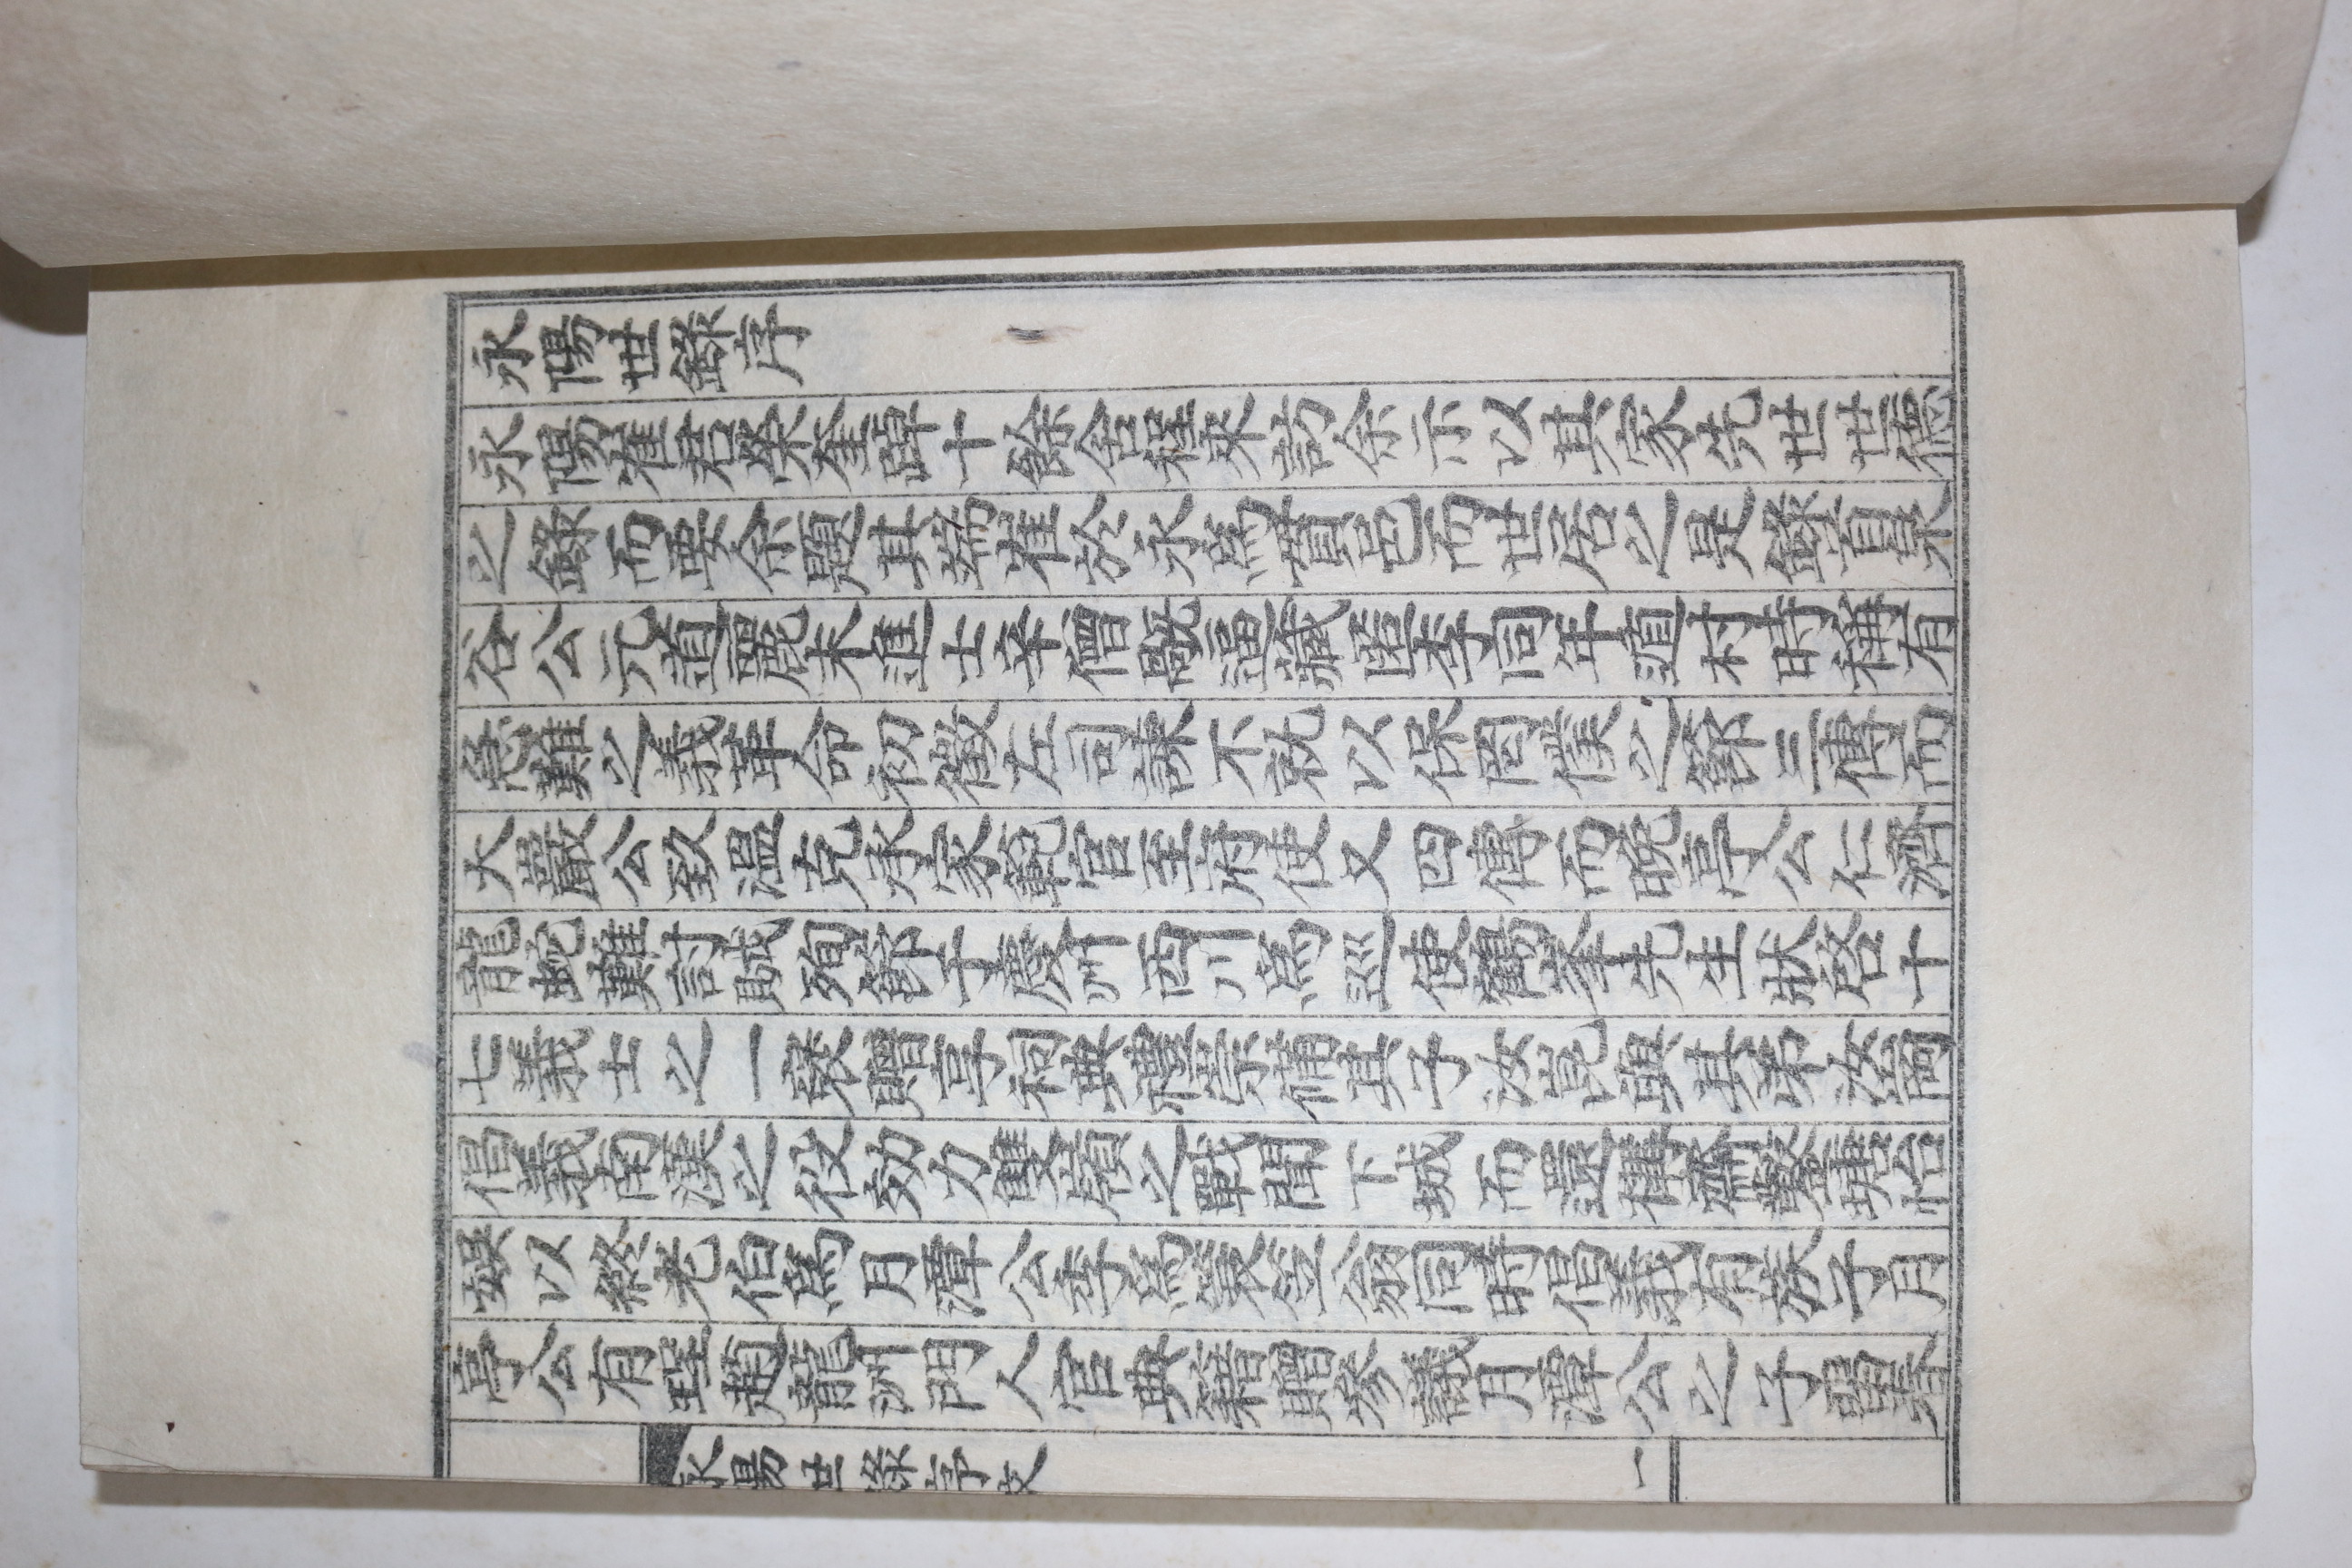 永陽世錄序
永陽崔君榮奎踔十餘舍程來訪余示以其家先世世德
之錄而要余題其端崔於永爲貫邑而世居之是錄首泉
谷公元道麗末進士辛僧毼逼藏匿李同年遁村時稱有
急難之義革命初徵左司諫不就以保罔僕之節三傳而
大巖公致溫克承家範官至府使又四傳而晩亭公仁濟
龍蛇難討賊殉節于慶州西川爲巡使鶴峯先生狀啓十
七義士之一褒贈享祠典禮崇備其子汝崑與其弟汝崗
倡義南漢之役効力雙嶺之戰聞下城而還構齋鑿塘怡
娛以終老伯爲月潭公季爲簑笠翁同時倡義有族子月
亭公有珵趙龍洲門人官典籍贈參議月潭公之子畱春
永陽世錄序文 一